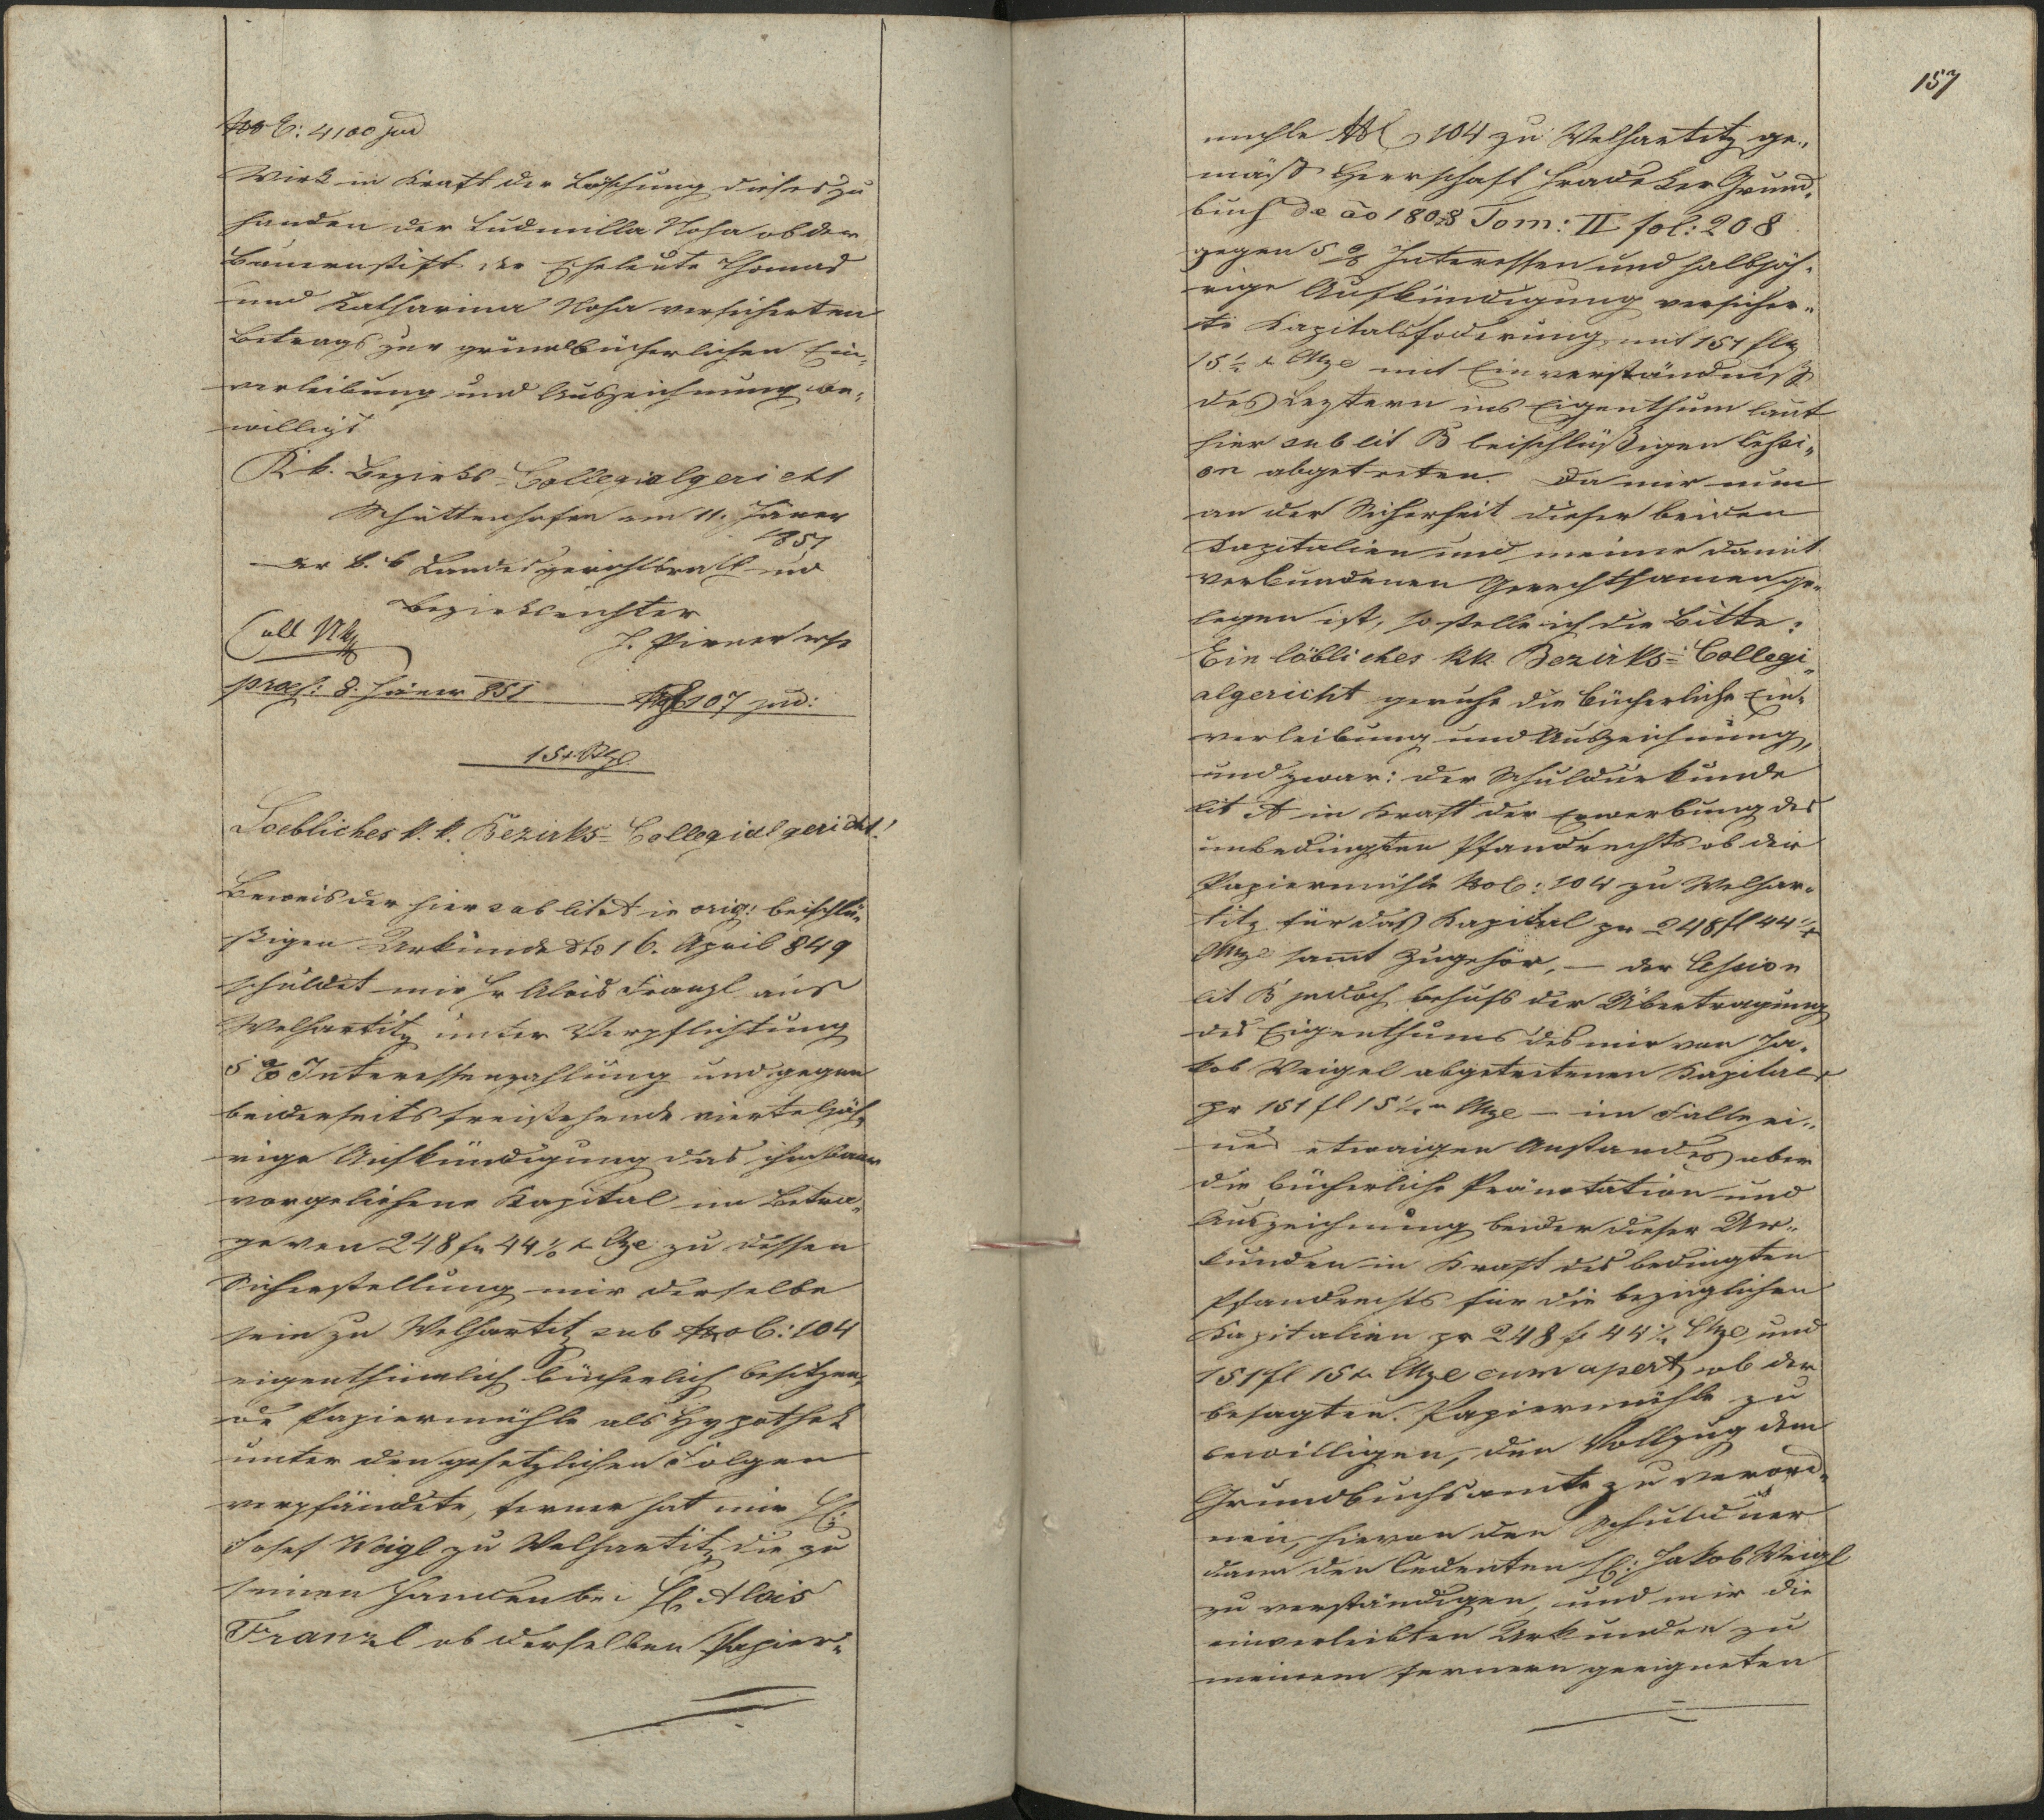 NoE: 4100 jud
Wird in Kraft der Löschung dieses zu
Handen der Ludmilla Nosa ob der
Bauernstift der Eheleute Thomas
und Katharina Nosa versicherten
Betrags zur grundbücherlichen Ein„
verleibung und Auszeichnung be„
williget
K k. Bezirks-Collegialgericht
Schüttenhofen am 11. Jäner
851
Der k. k Landesgerichtsrath und
Bezirksrichter
Coll
J. Pirner
praes: 8. Jäner 851 107 jud:
15 x
Loebliches k. k. Bezirks-Collegialgericht!
Beweis der hier sub lit A in orig: beischlü„
ßigen Urkunde dto 16. April 849
schuldet mir H Alois Franzl aus
Welhartitz unter Verpflichtung
5 % Interessenzahlung und gegen
beiderseits freistehende vierteljäh„
rige Aufkündigung das ihm baar
vorgeliehene Kapital im Betra„
ge von 248 fr 44 ½ x Mze zu dessen
Sicherstellung mir derselbe
sein zu Welhartitz sub NroC: 104
eigenthümlich bücherlich besitzen„
de Papiermühle als Hypothek
unter den gesetzlichen Folgen
verpfändete, ferner hat mir H:
Josef Weigl zu Welhartitz die zu
seinen Handen bei H. Alois
Franzl ob derselben Papier„
157
muhle NC 104 zu Welhartitz ge„
mäß Herrschaft Hradeker Grund„
buch de ao 1808 Tom: II fol: 208
gegen 5 % Interessen und halbjäh„
rige Aufkündigung versicher„
te Kapitalsfoderung mit 151 fl
15 ½ x Mze mit Einverständniß
des Leztern ins Eigenthum laut
hier sub lit B beischlüßigen Cessi„
on abgetreten. Da mir nun
an der Sicherheit dieser beiden
Kapitalien und meiner damit
verbundenen Gerechtsamen ge„
legen ist, so stelle ich die Bitte:
Ein löbliches kk Bezirks-Collegi„
algericht geruhe die bücherliche Ein„
verleibung und Auszeichnung,
und zwar: der Schuldurkunde
lit A in Kraft der Erwerbung des
unbedingten Pfandrechts ob der
Papiermühle NoC: 104 zu Welhar„
titz für das Kapital pr 248 fl 44 ½ x
Mze sammt Zugehör, – der Cession
lit B jedoch behufs der Übertragung
des Eigenthums des mir von Ja„
kob Weigel abgetretenen Kapitals
pr 151 fl 15 ½ x Mze – im Falle ei„
nes etwaigen Anstandes aber
die bücherliche Pränotation und
Auszeichnung beider dieser Ur„
kunden in Kraft des bedingten
Pfandrechts für die bezüglichen
Kapitalien pr 248 f 44 ½ Mze und
151 fl 15 x Mze cum apert, ob der
besagten Papiermühle zu
bewilligen, den Vollzug dem
Grundbuchsamte zu verord„
nen, hievon den Schuldner
dann den Cedenten H: Jakob Weigl
zu verständigen, und mir die
einverleibten Urkunden zu
meinem fernern geeigneten